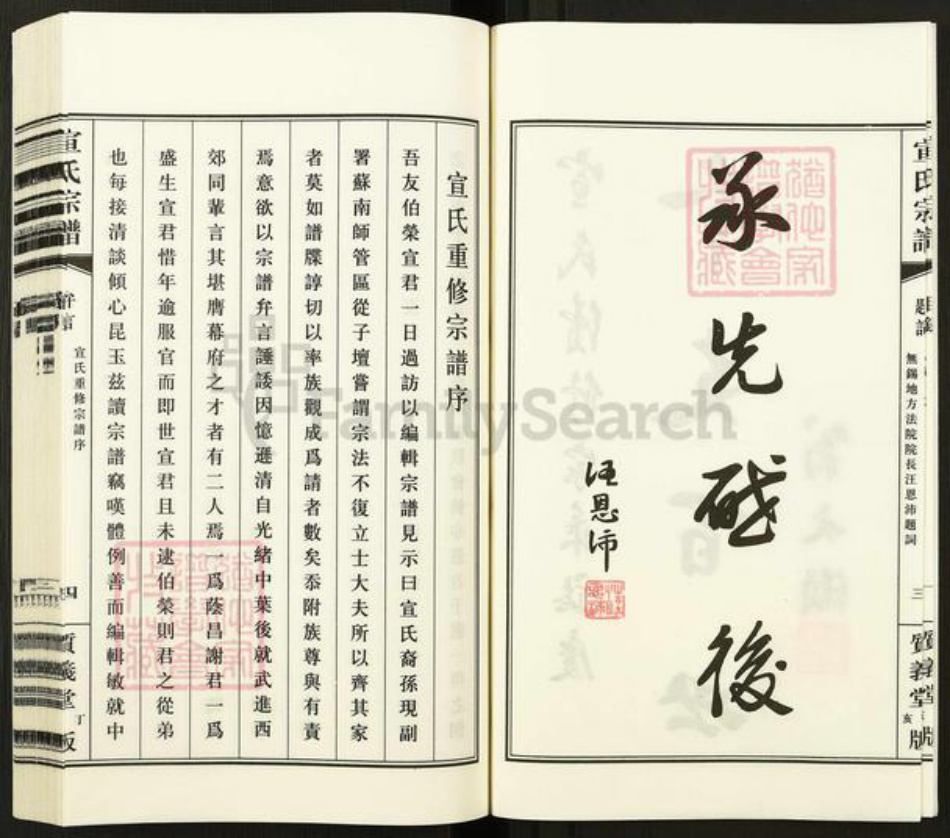 承先啟後
汪恩沛
宣氏宗譜
題詞
無錫地方法院院長汪恩沛題詞
三
質義堂
亥
版
宣氏重修宗譜序
吾友伯榮宣君一日過訪以編輯宗譜見示曰宣氏裔孫現副
署蘇南師管區從子壇嘗謂宗法不復立士大夫所以齊其家
者莫如譜牒諄切以率族觀成爲請者數矣忝附族尊與有責
焉意欲以宗譜弁言諈諉因憶遜清自光緒中葉後就武進西
郊同輩言其堪膺幕府之才者有二人焉一爲蔭昌謝君一爲
盛生宣君惜年逾服官而即世宣君且未逮伯榮則君之從弟
也每接清談傾心昆玉茲讀宗譜竊嘆體例善而編輯敏就中
宣氏宗譜
弁言
宣氏重修宗譜序
四
質義堂
丁
版
FamilySearch